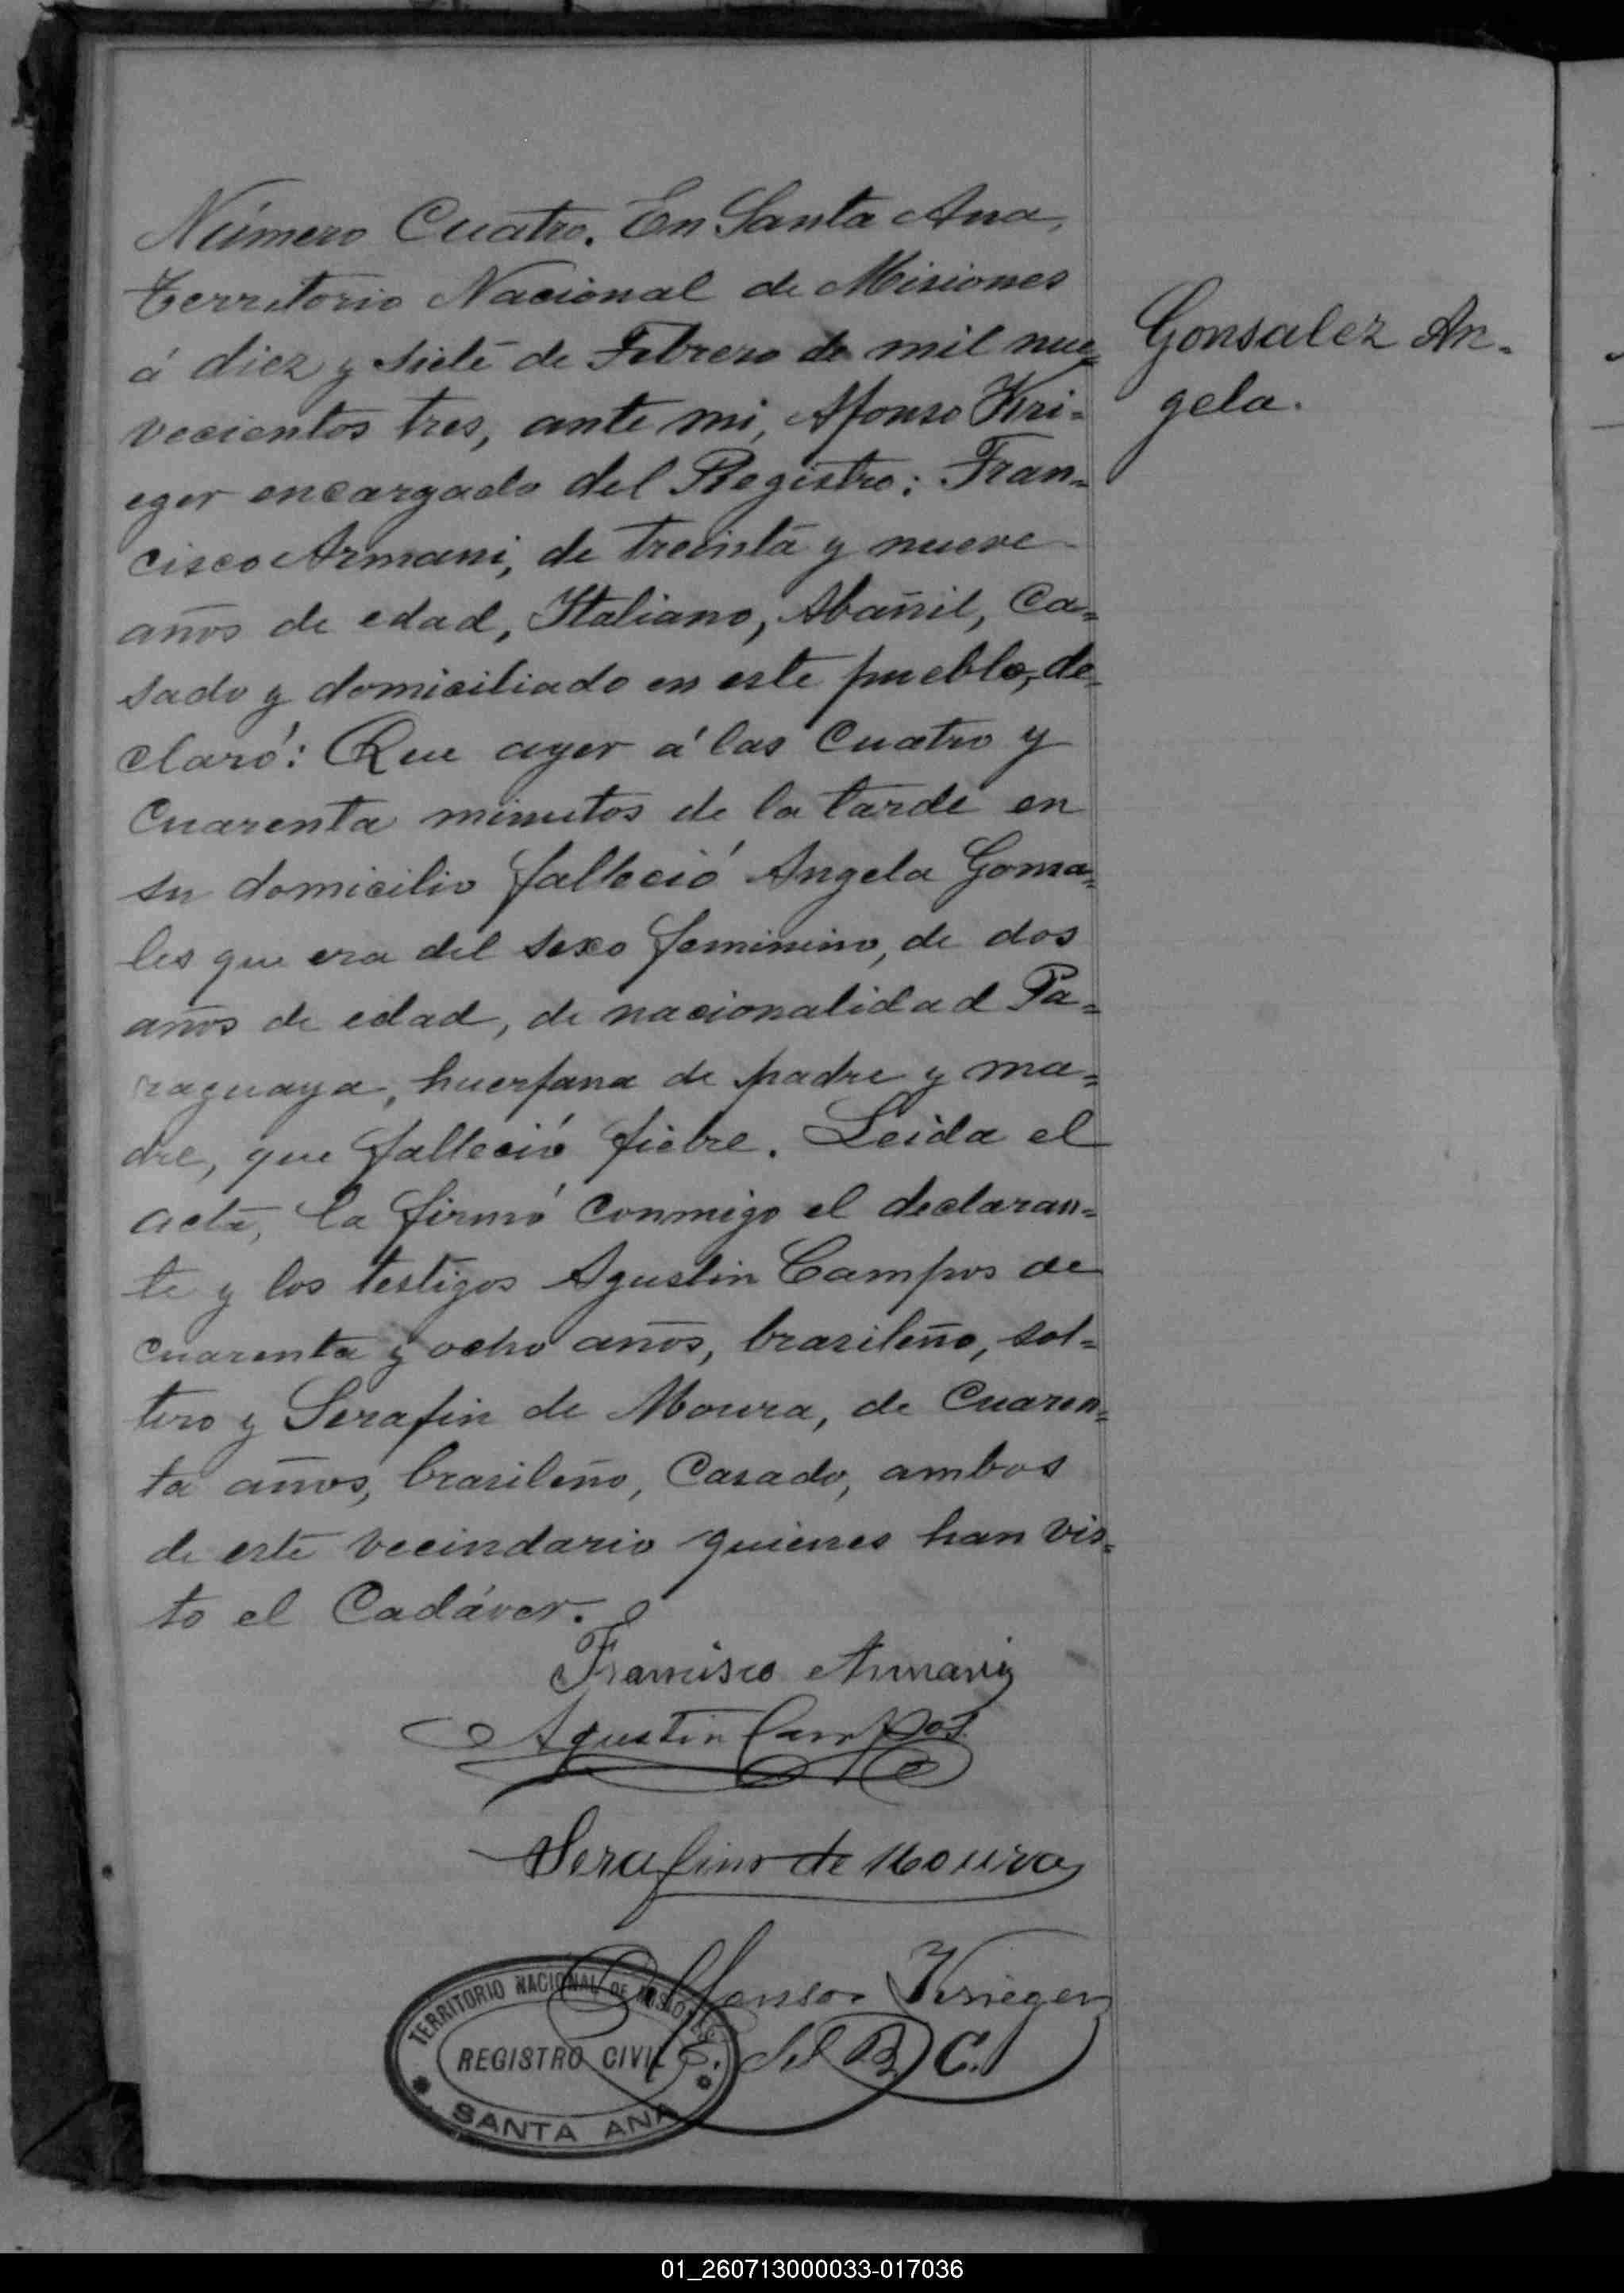 Número Cuatro. En Santa Ana,
Territorio Nacional de Misiones
á diez y siete de Febrero de mil nue=
vecientos tres, ante mi, Afonso Kri=
eger encargado del Registro: Fran=
cisco Armani, de treinta y nueve
años de edad, Italiano, Abañil, Ca=
sado y domiciliado en este pueblo, de=
claró: Que ayer á las Cuatro y
Cuarenta minutos de la tarde en
su domicilio falleció Angela Gonsa=
les que era del sexo feminino, de dos
años de edad, de nacionalidad Pa=
raguaya, huerfana de padre y ma=
dre, que falleció fiebre. Leida el
acta, la firmó Conmigo el declaran=
te y los testigos Agustin Campos de
cuarenta y ocho años, brasileño, sol=
tero y Serafin de Moura, de Cuaren=
ta años, brasileño, Casado, ambos
de este vecindario quienes han vis=
to el Cadáver.
Gonsalez An-
gela.
Francisco Armani
Agustin Campos
Serafino de Moura
Affonso Krieger
E. del R. C.
TERRITORIO NACIONAL DE MISIONES
REGISTRO CIVIL
SANTA ANA
01_260713000033-017036